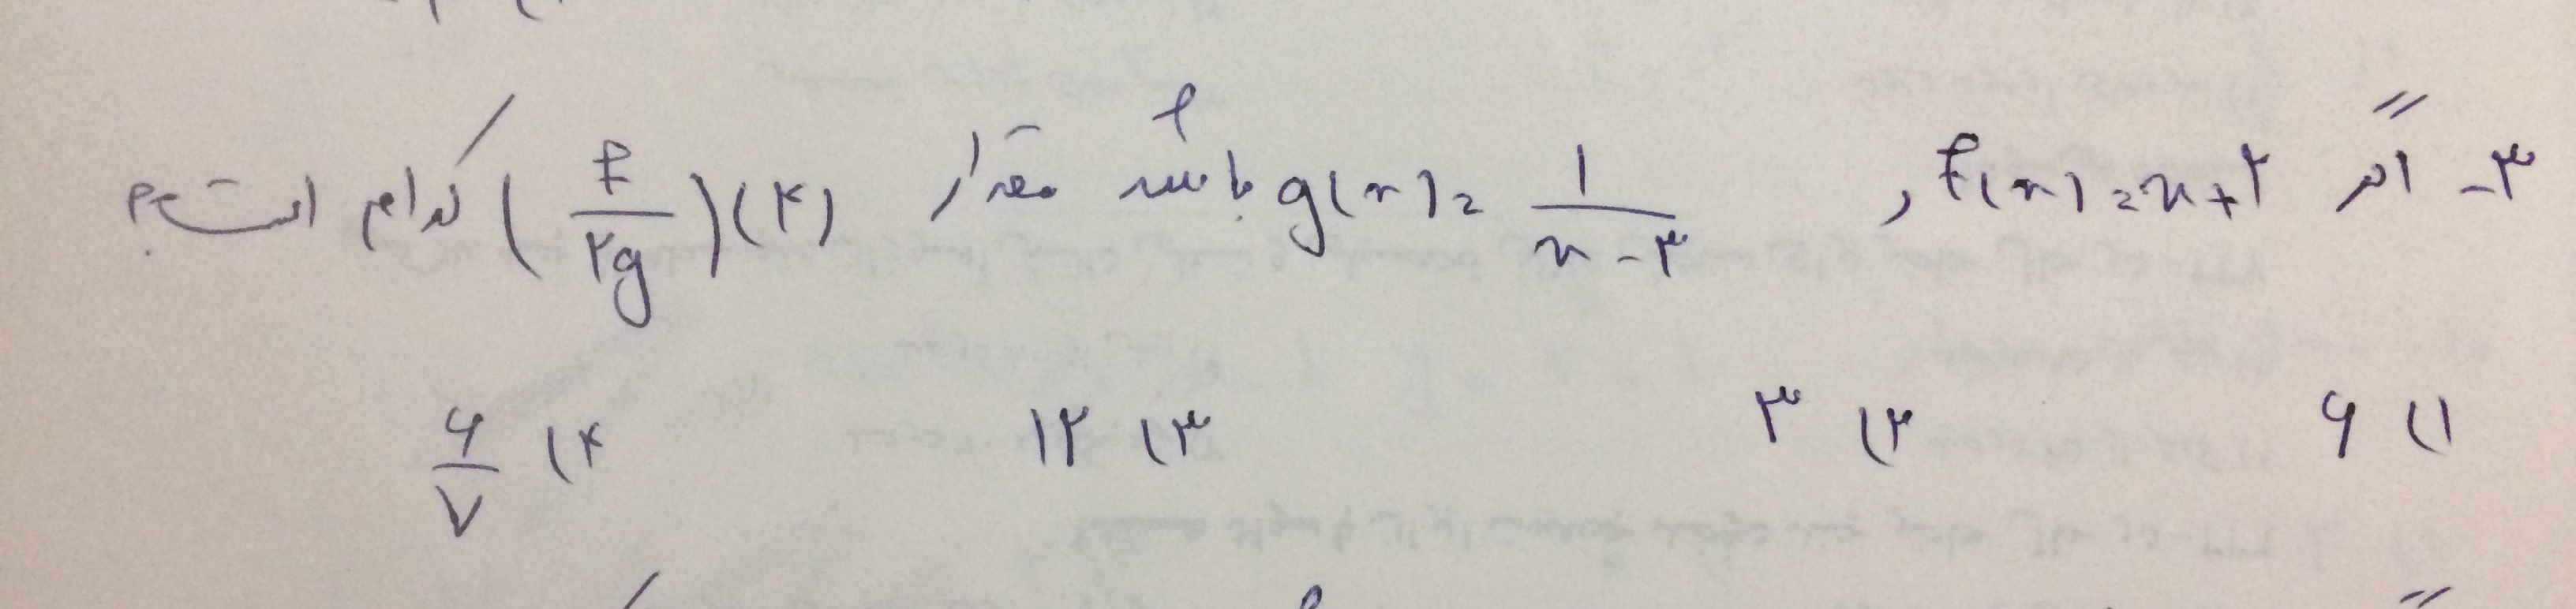 ۳- اگر f(x)=x+۲ و g(x)= ۱/(x-۳) باشد مقدار (f/۲g)(۴) کدام است؟
۱) ۶ ۲) ۳ ۳) ۱۲ ۴) ۶/۷